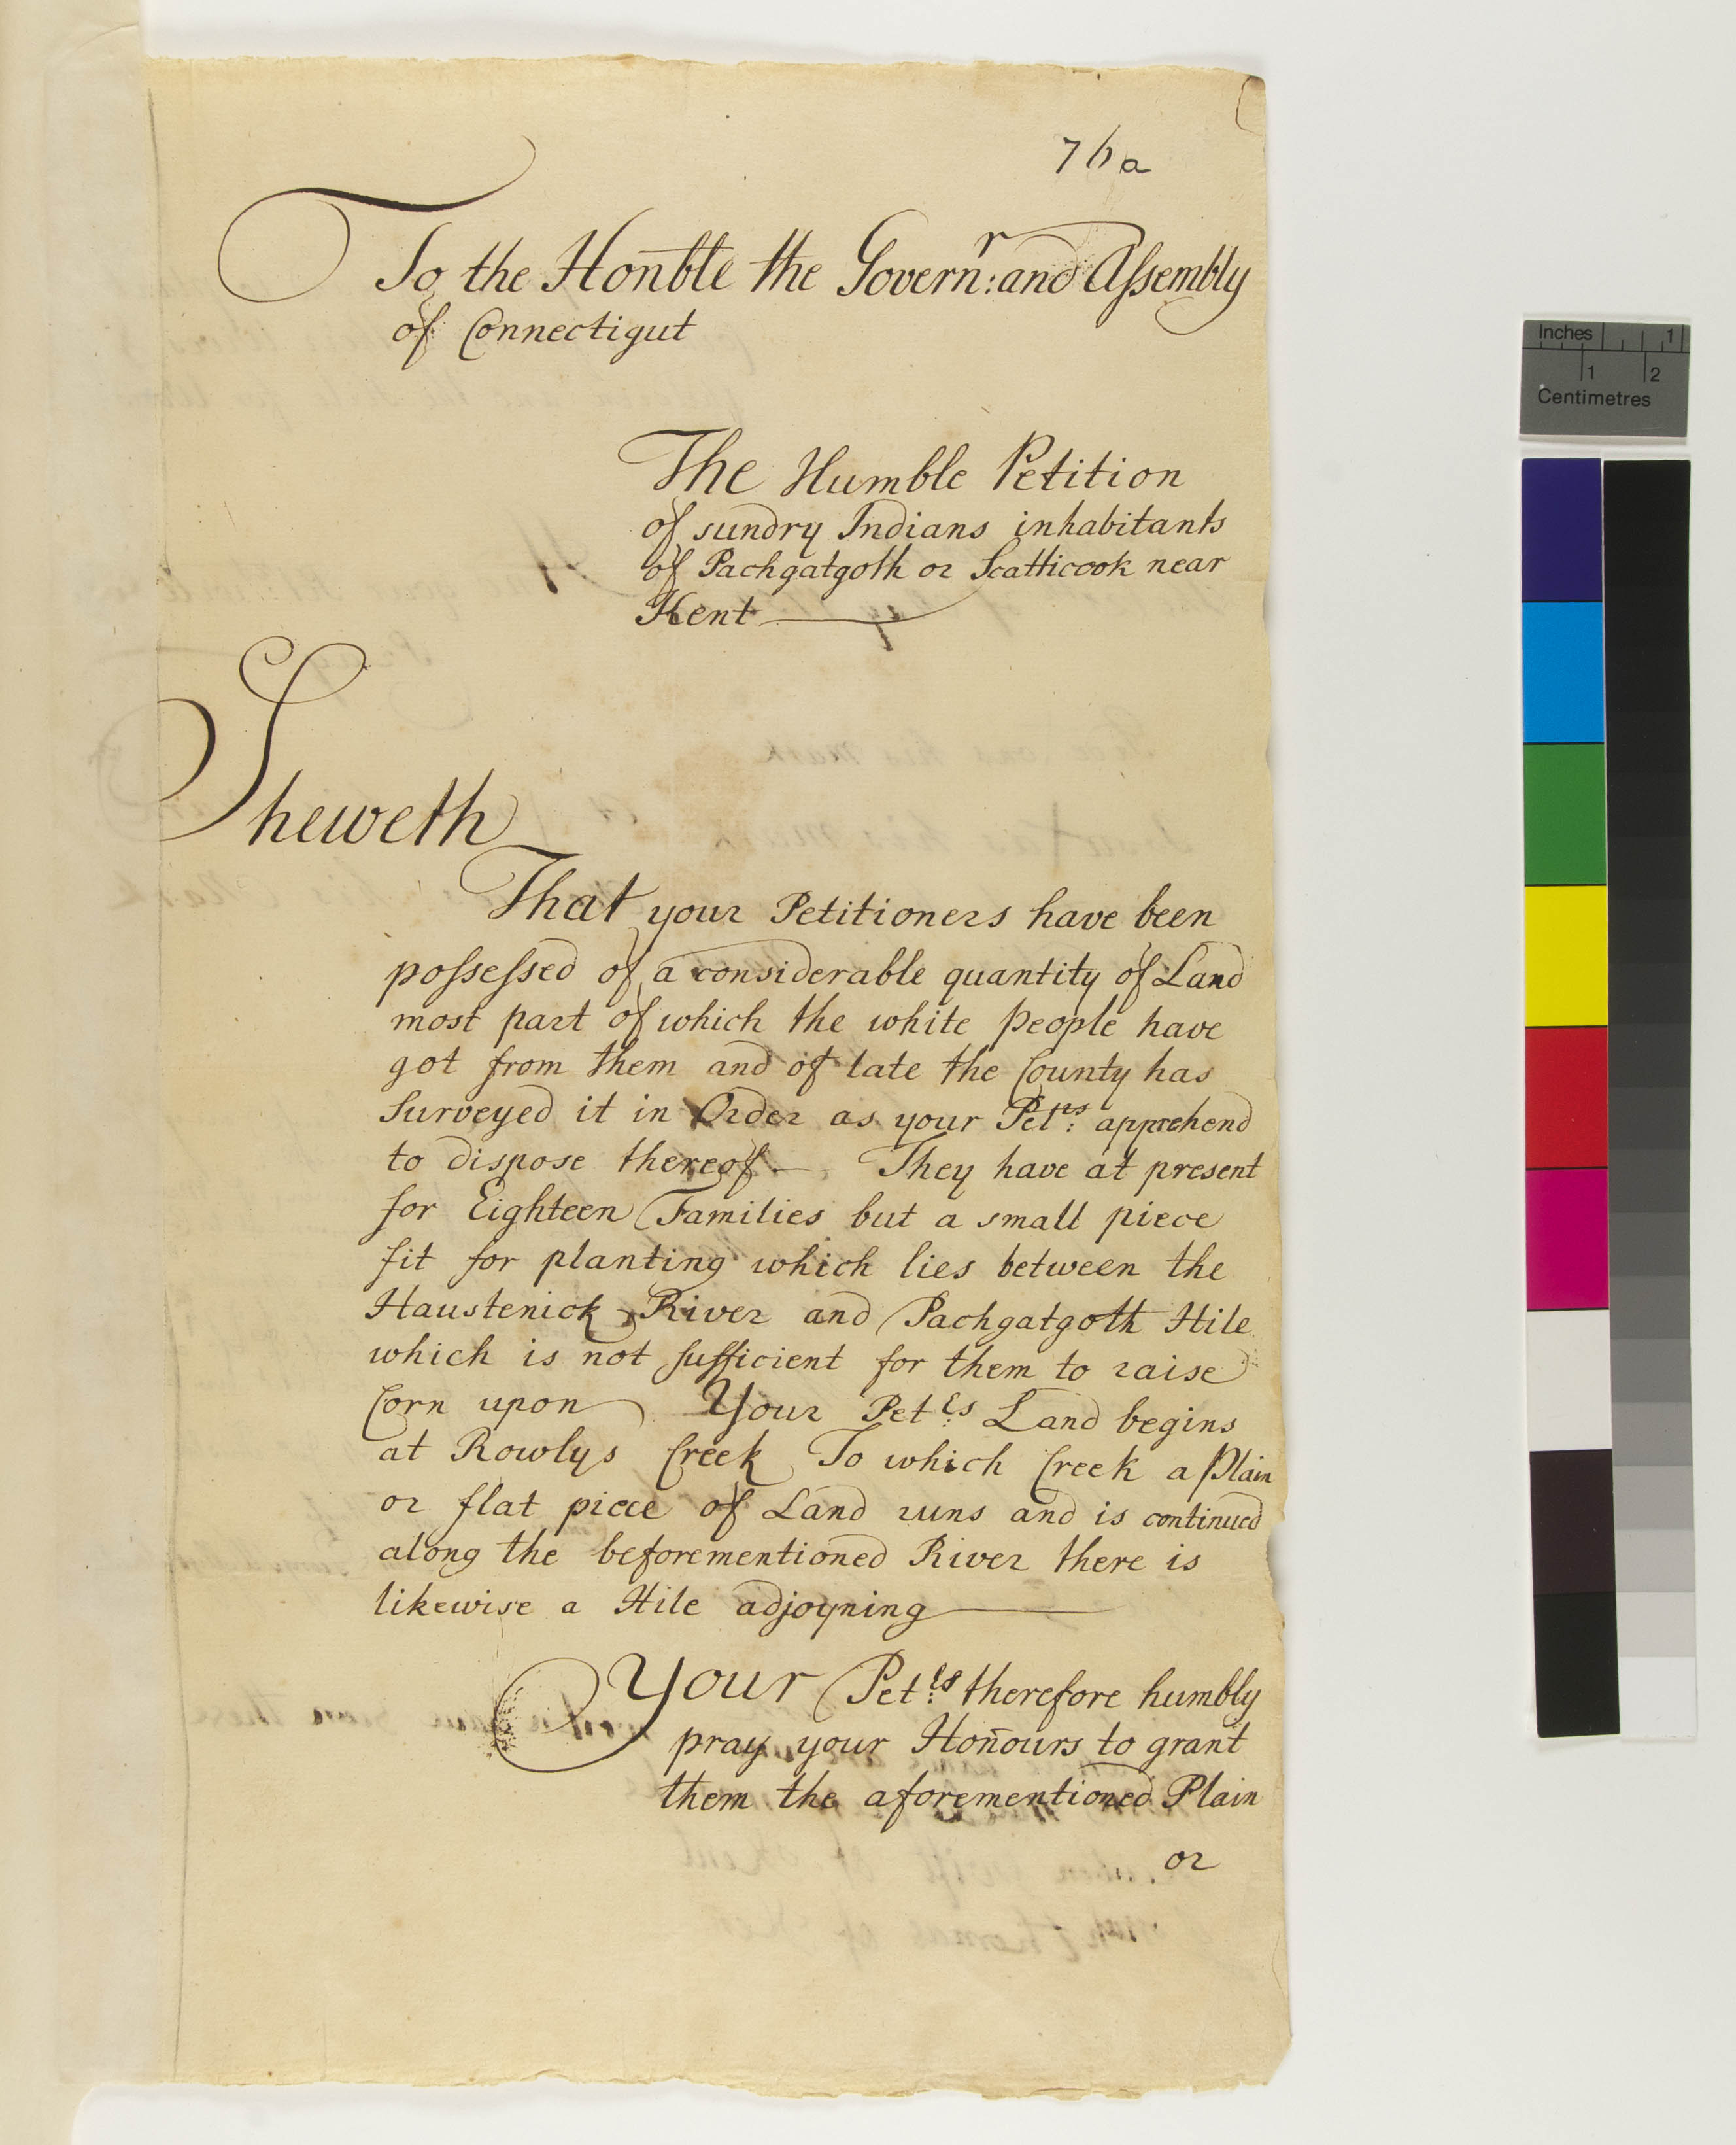 76a
To the Hon̄ble the Govern:r and Assembly
of Connectigut
The Humble Petition
of sundry Indians inhabitants
of Pachgatgoth or Scatticook near
Kent
Sheweth
That your Petitioners have been
possessed of a considerable quantity of Land
most part of which the white people have
got from them and of late the County has
Surveyed it in Order as your Pet:rs apprehend
to dispose thereof — They have at present
for Eighteen Families but a small piece
fit for planting which lies between the
Haustenick River and Pachgatgoth Hile
which is not sufficient for them to raise
Corn upon Your Pet:rs Land begins
at Rowlys Creek To which Creek a Plain
or flat piece of Land runs and is continued
along the beforementioned River there is
likewise a Hile adjoyning
Your Pet:rs therefore humbly
pray your Hon̄ours to grant
them the aforementioned Plain
or
Inches 1
1 2
Centimetres